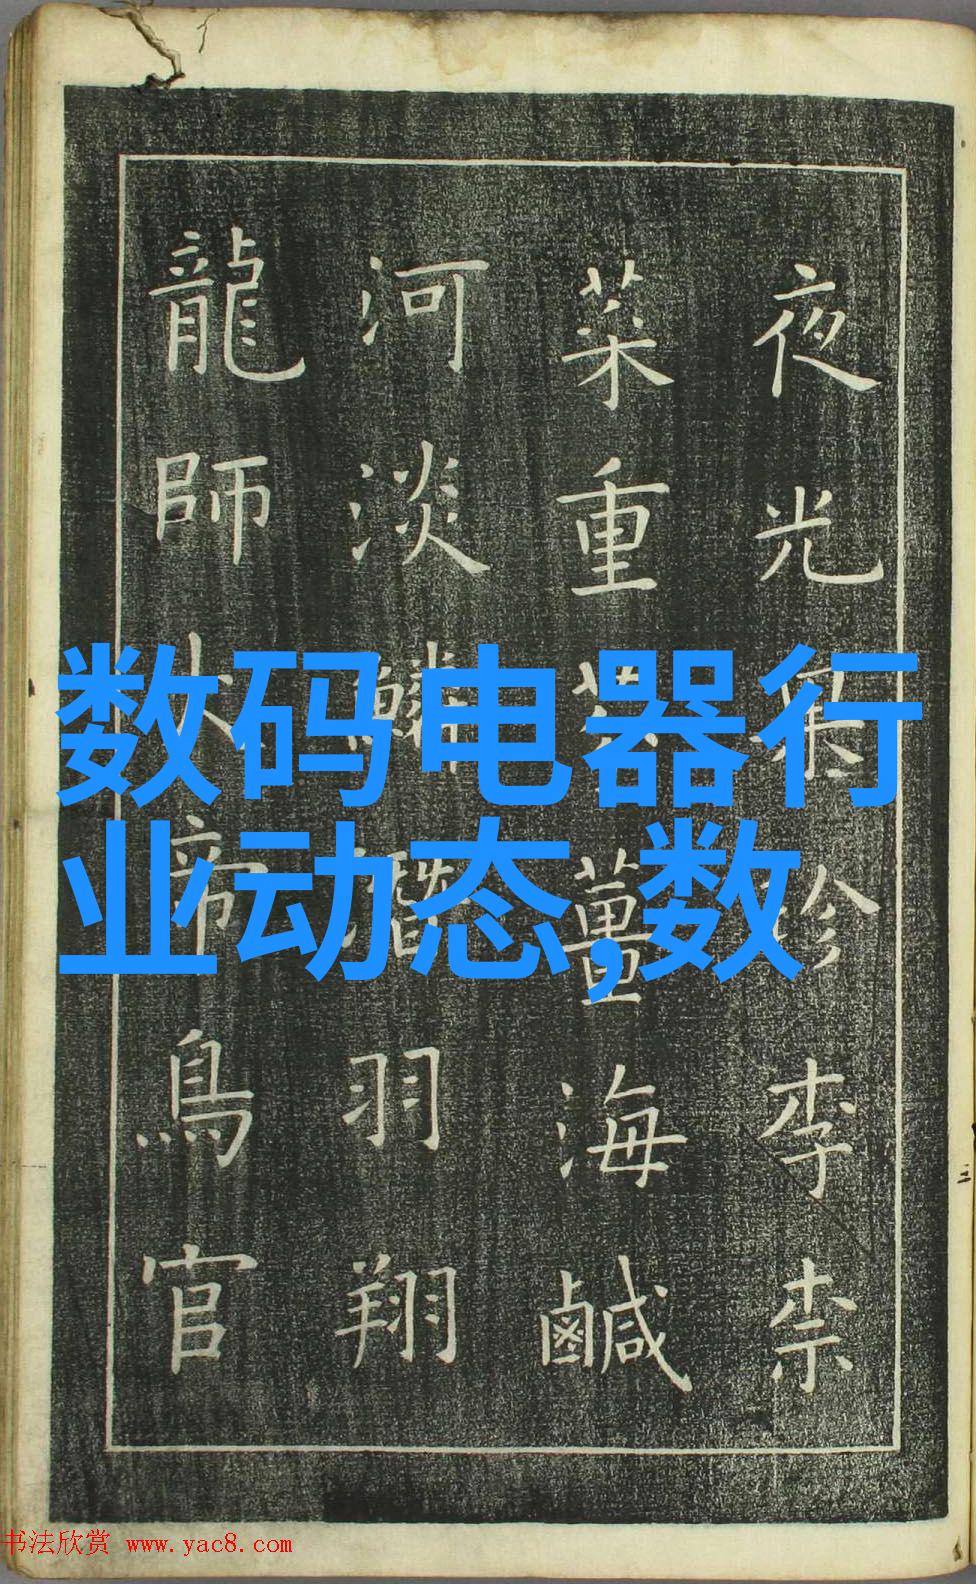 夜光果珍李柰
菜重芥薑海鹹
河淡鱗潛羽翔
龍師火帝鳥官
数码电器行
业动态,数
书法欣赏 www.yac8.com